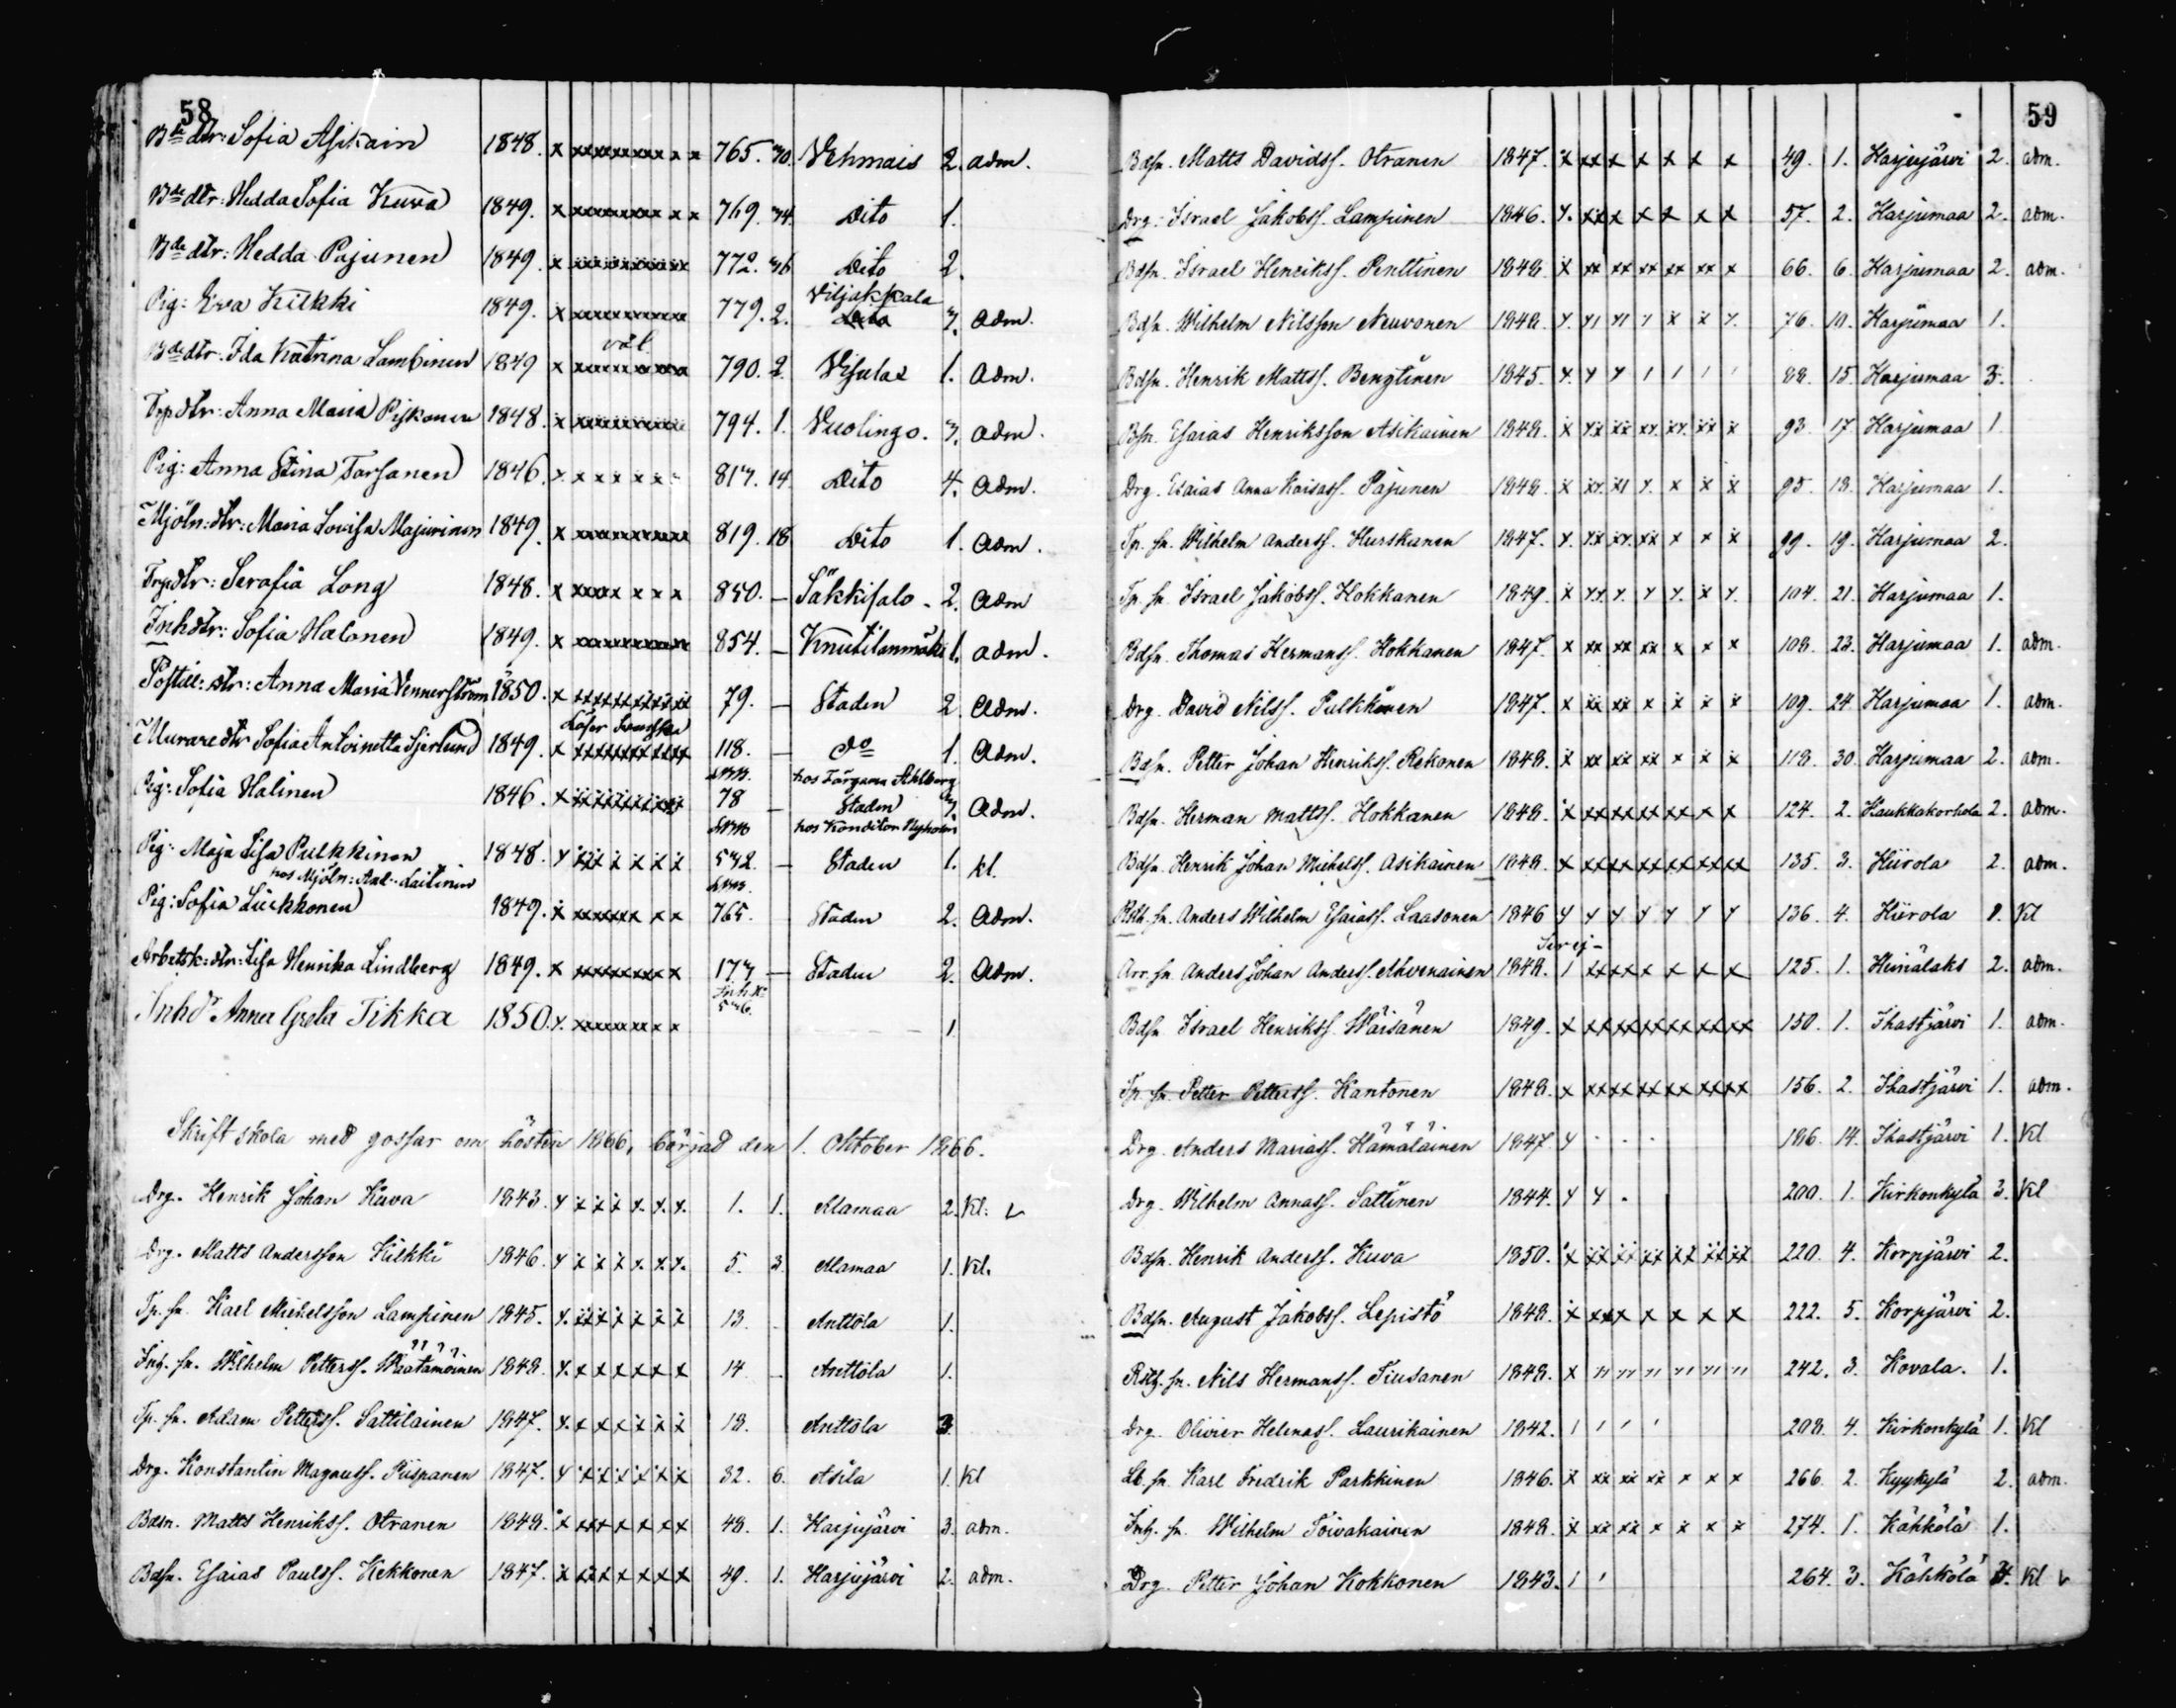 58
Bde dtr: Sofia Asikain 1848. x xxxxxxxxx x x 765. 70. Vehmais 2. adm.
Bde dtr: Hedda Sofia Kuva 1849. x xxxxxxxxx x x 769. 74. Dito 1.
Bde dtr: Hedda Pajunen 1849. x xxxxxxxxxx 772. 76 Dito 2.
Viljakkala
Pig: Eva Kilkki 1849. x xxxxxxxxxx 779. 2. Dito 3. adm.
väl
Bde dtr: Ida Katrina Lambinen 1849 x xxxxxxxxxx 790. 2. Visulax 1. adm.
Trp dtr: Anna Maria Piskonen 1848. x xxxxxxxxxx 794. 1. Vuolingo. 3. adm.
Pig: Anna Stina Tarsanen 1846. x x x x x x 817. 14 Dito 4. adm.
Mjöln: dtr: Maria Lovisa Majurinen 1849. x xxxxxxxxxx 819. 18 Dito 1. adm.
Trp dtr: Serafia Long 1848. x xxxx x x x 850. — Säkkisalo. 2. adm
Inh dtr: Sofia Halonen 1849. x xxxxxxxxxx 854. — Knutilanmäki 1. adm.
Postill: dtr: Anna Maria Vennerström 1850. x xxxxxxxxxx 79. — Staden 2. adm.
Läser Svenska
Murare dtr Sofia Antoinetta Sjerlund 1849. x xxxxxxxxxx 118. — do 1. adm.
hos Färgaren Ahlberg
Pig: Sofia Halinen 1846. x xxxxxxxxxx 78 — Staden 3. adm.
hos Konditor Nyholm
Pig: Maja Lisa Pulkkinen 1848. x xx x x x x x 532. — Staden 1. kl.
hos Mjöln: And. Laitinen
Pig: Sofia Liukkonen 1849. x xxxxxx x x 765. Staden 2. adm.
Arbetsk: dtr: Lisa Henrika Lindberg 1849. x xxxxxxxx x 177 — Staden 2. adm.
Inh dr Anna Greta Tikka 1850. x. xxxxxxx x x 1.
Skriftskola med gossar om hösten 1866, börjad den 1. Oktober 1866.
Drg. Henrik Johan Kuva 1843. x x x x x. x. x. 1. 1. Alamaa 2. Kl.
Drg. Matts Andersson Kilkki 1846. x x x x x. x. x. 5. 3. Alamaa 1. Kl.
Tp. sn. Karl Michelsson Lampinen 1845. x. xx x x x x 13. Anttola 1.
Inh. sn. Wilhelm Petterss. Wäätämöinen 1848. x. x x x x x x 14 Anttola 1.
Tp. sn. Adam Petterss. Sattilainen 1847. x. x x x x x x 18. Anttola 3.
Drg. Konstantin Magnuss. Piispanen 1847. x x x x x x x 32. 6. Asila 1. Kl
Bdsn. Matts Henrikss. Otranen 1848. x xxx x x x x 48. 1. Harjujärvi 3. adm.
Bdsn. Esaias Paulss. Kekkonen 1847. x xx x x x x x 49. 1. Harjujärvi 2. adm.
59
Bdsn. Matts Davidss. Otranen 1847. x xx x x x x x 49. 1. Harjujärvi 2. adm.
Drg: Israel Jakobss. Lampinen 1846. x. xx x x x x x 57. 2. Harjumaa 2. adm.
Bdsn. Israel Henrikss. Penttinen 1848. x xx xx xx xx xx x 66. 6. Harjumaa 2. adm.
Bdsn. Wilhelm Nilsson Neuvonen 1848. 76. 10. Harjumaa 1.
Bdsn. Henrik Mattss. Bengtinen 1845. 88. 15. Harjumaa 3.
Bsn. Esaias Henriksson Asikainen 1848. x xx xx xx xx xx x 93. 17. Harjumaa 1.
Drg. Esaias Anna Kaisass. Pajunen 1848. 95. 18. Harjumaa 1.
Tp. sn. Wilhelm Anderss. Hurskanen 1847. x. xx xx. xx x x x 99. 19. Harjumaa 2.
Tp. sn. Israel Jakobss. Hokkanen 1849. x xx x. x x. x x. 104. 21. Harjumaa 1.
Bdsn. Thomas Hermanss. Hokkanen 1847. x xx xx xx x x x 108. 23. Harjumaa 1. adm.
Drg. David Nilss. Pulkkinen 1847. x xx xx x x x x 109. 24 Harjumaa 1. adm.
Bdsn. Petter Johan Henrikss. Rekonen 1848. x xx xx xx x x x 118. 30. Harjumaa 2. adm.
Bdsn. Herman Mattss. Hokkanen 1848. x xxxxxxxx x x 124. 2. Haukkakorhola 2. adm.
Bdsn. Henrik Johan Michelss. Asikainen 1848. x xxxxxxxxxxxx 135. 3. Hiirola 2. adm.
Rsth. sn. Anders Wilhelm Esaiass. Laasonen 1846 136. 4. Hiirola 1. Kl
Ser ej -
Arr. sn. Anders Johan Anderss. Ahvenainen 1848. 1 xxxx x x x x 125. 1. Heinälaks 2. adm.
Bdsn Israel Henrikss. Wäisänen 1849. x xxxxxxxxxxxx 150. 1. Ihastjärvi 1. adm.
Tp. sn. Petter Petterss. Kantonen 1848. x xxxxxxxxxxxx 156. 2. Ihastjärvi 1. adm.
Drg. Anders Mariass. Hämäläinen 1847 186. 14. Ihastjärvi 1. Kl
Drg. Wilhelm Annass. Sattinen 1844. 200. 1. Kirkonkylä 3. Kl
Bdsn. Henrik Anderss. Kuva 1850. x xx xx xx xx xx xx 220. 4. Korpjärvi 2.
Bdsn. August Jakobss. Lepistö 1848. x xxx x x x x x 222. 5. Korpjärvi 2.
Rsth. sn. Nils Hermanss. Tiusanen 1848. x 242. 3. Kovala. 1.
Drg. Olivier Helenass. Laurikainen 1842. 208. 4. Kirkonkylä 1. Kl
Lb. sn. Karl Fredrik Parkkinen 1846. x xx xx xx x x x 266. 2. Kyykylä 2. adm.
Inh. sn. Wilhelm Toivakainen 1848. x xx xx x x x x 274. 1. Kähkölä 1.
Drg. Petter Johan Kokkonen 1843. 264. 3. Kähkölä Kl